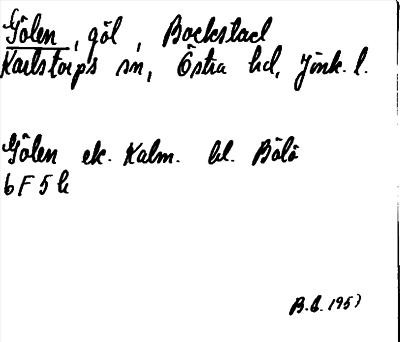 Gölen, göl, Bockstad
Karlstorps sn, Östra hd, Jönk. l.
Gölen ek. Kalm. bl. Bölö
6 F 5 h
B.E. 1957